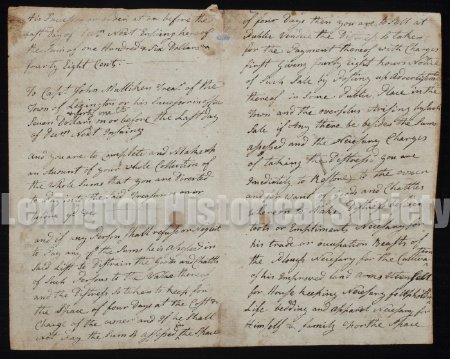 the Treasurer or on or before the
last Day of Decr. Next Ensuing here of
the Sum of one Hundred & Six Dollars
fourty Eight Cents
To Capt. John Mulliken Treasr. of the
Town of Lexington or his Successor in office
Seven Dollars on or before the Last Day
of Decr. Next Insuing
And you are to Compleat and Make up
an account of your whole Collections of
the whole Sums that you are Directed
to
and if any Person Shall refuse or neglect
to Pay any of the Sums he is assessed in
Said List to Distrain the Goods and Chattles
of Such Persons to the Value thereof
and the Distress So taken to keep for
the Space of four Days at the Cost &
Charge of the owner and if he Shall
Not Pay the Sum so assessed the Space
of four Days then you are to Sell at
Public Vendue the Distress so taken
for the Payment thereof with Charges
first Giving fourty eight hours Notice
of Such Sale by Posting up advertisements
thereof in Some Public Place in the
Town and the overplus Arising by Such
Sale if Any there be besides the Sum
assessed and the Necessary Charges
of taking the Distress you are
Imediately to Restore to the owner
and for want of Goods and Chattles
whereon to Make Distress besides
tools or Impliments Necessary for
his trade or occupation Beasts of
the Plough Necessary for the Cultiva
of his Improved land arms utensils
for House keeping Necessary for upholding
Life bedding and apparel Necessary for
Himself & family for the Space
Lexington Historical Society